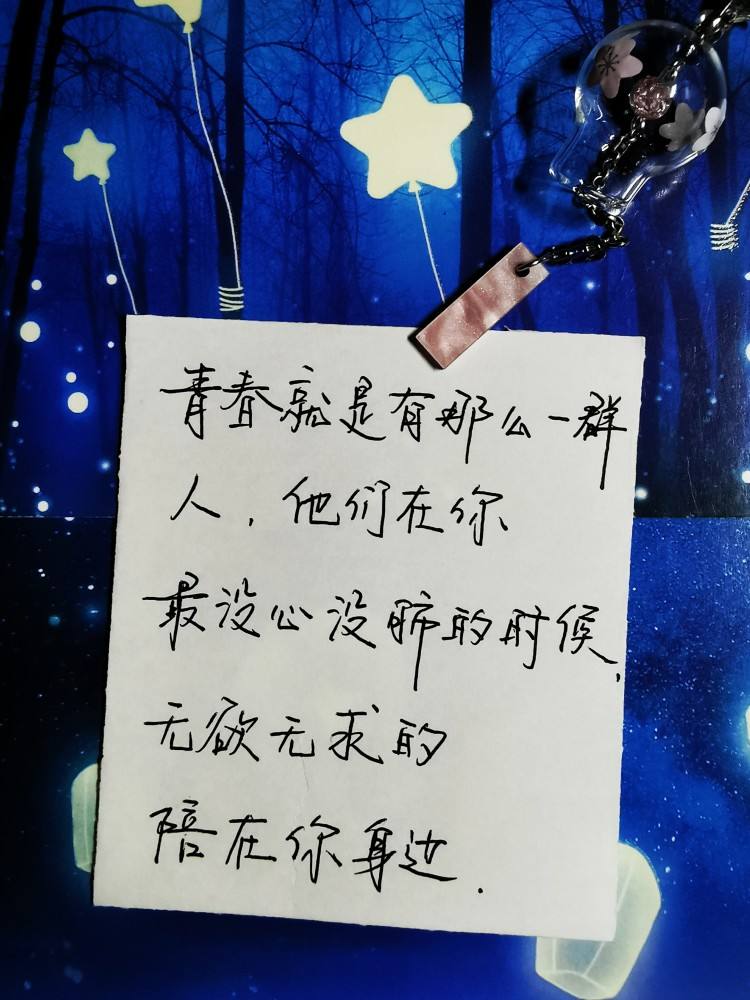 青春就是有那么一群
人，他们在你
最没心没肺的时候，
无欲无求的
陪在你身边.